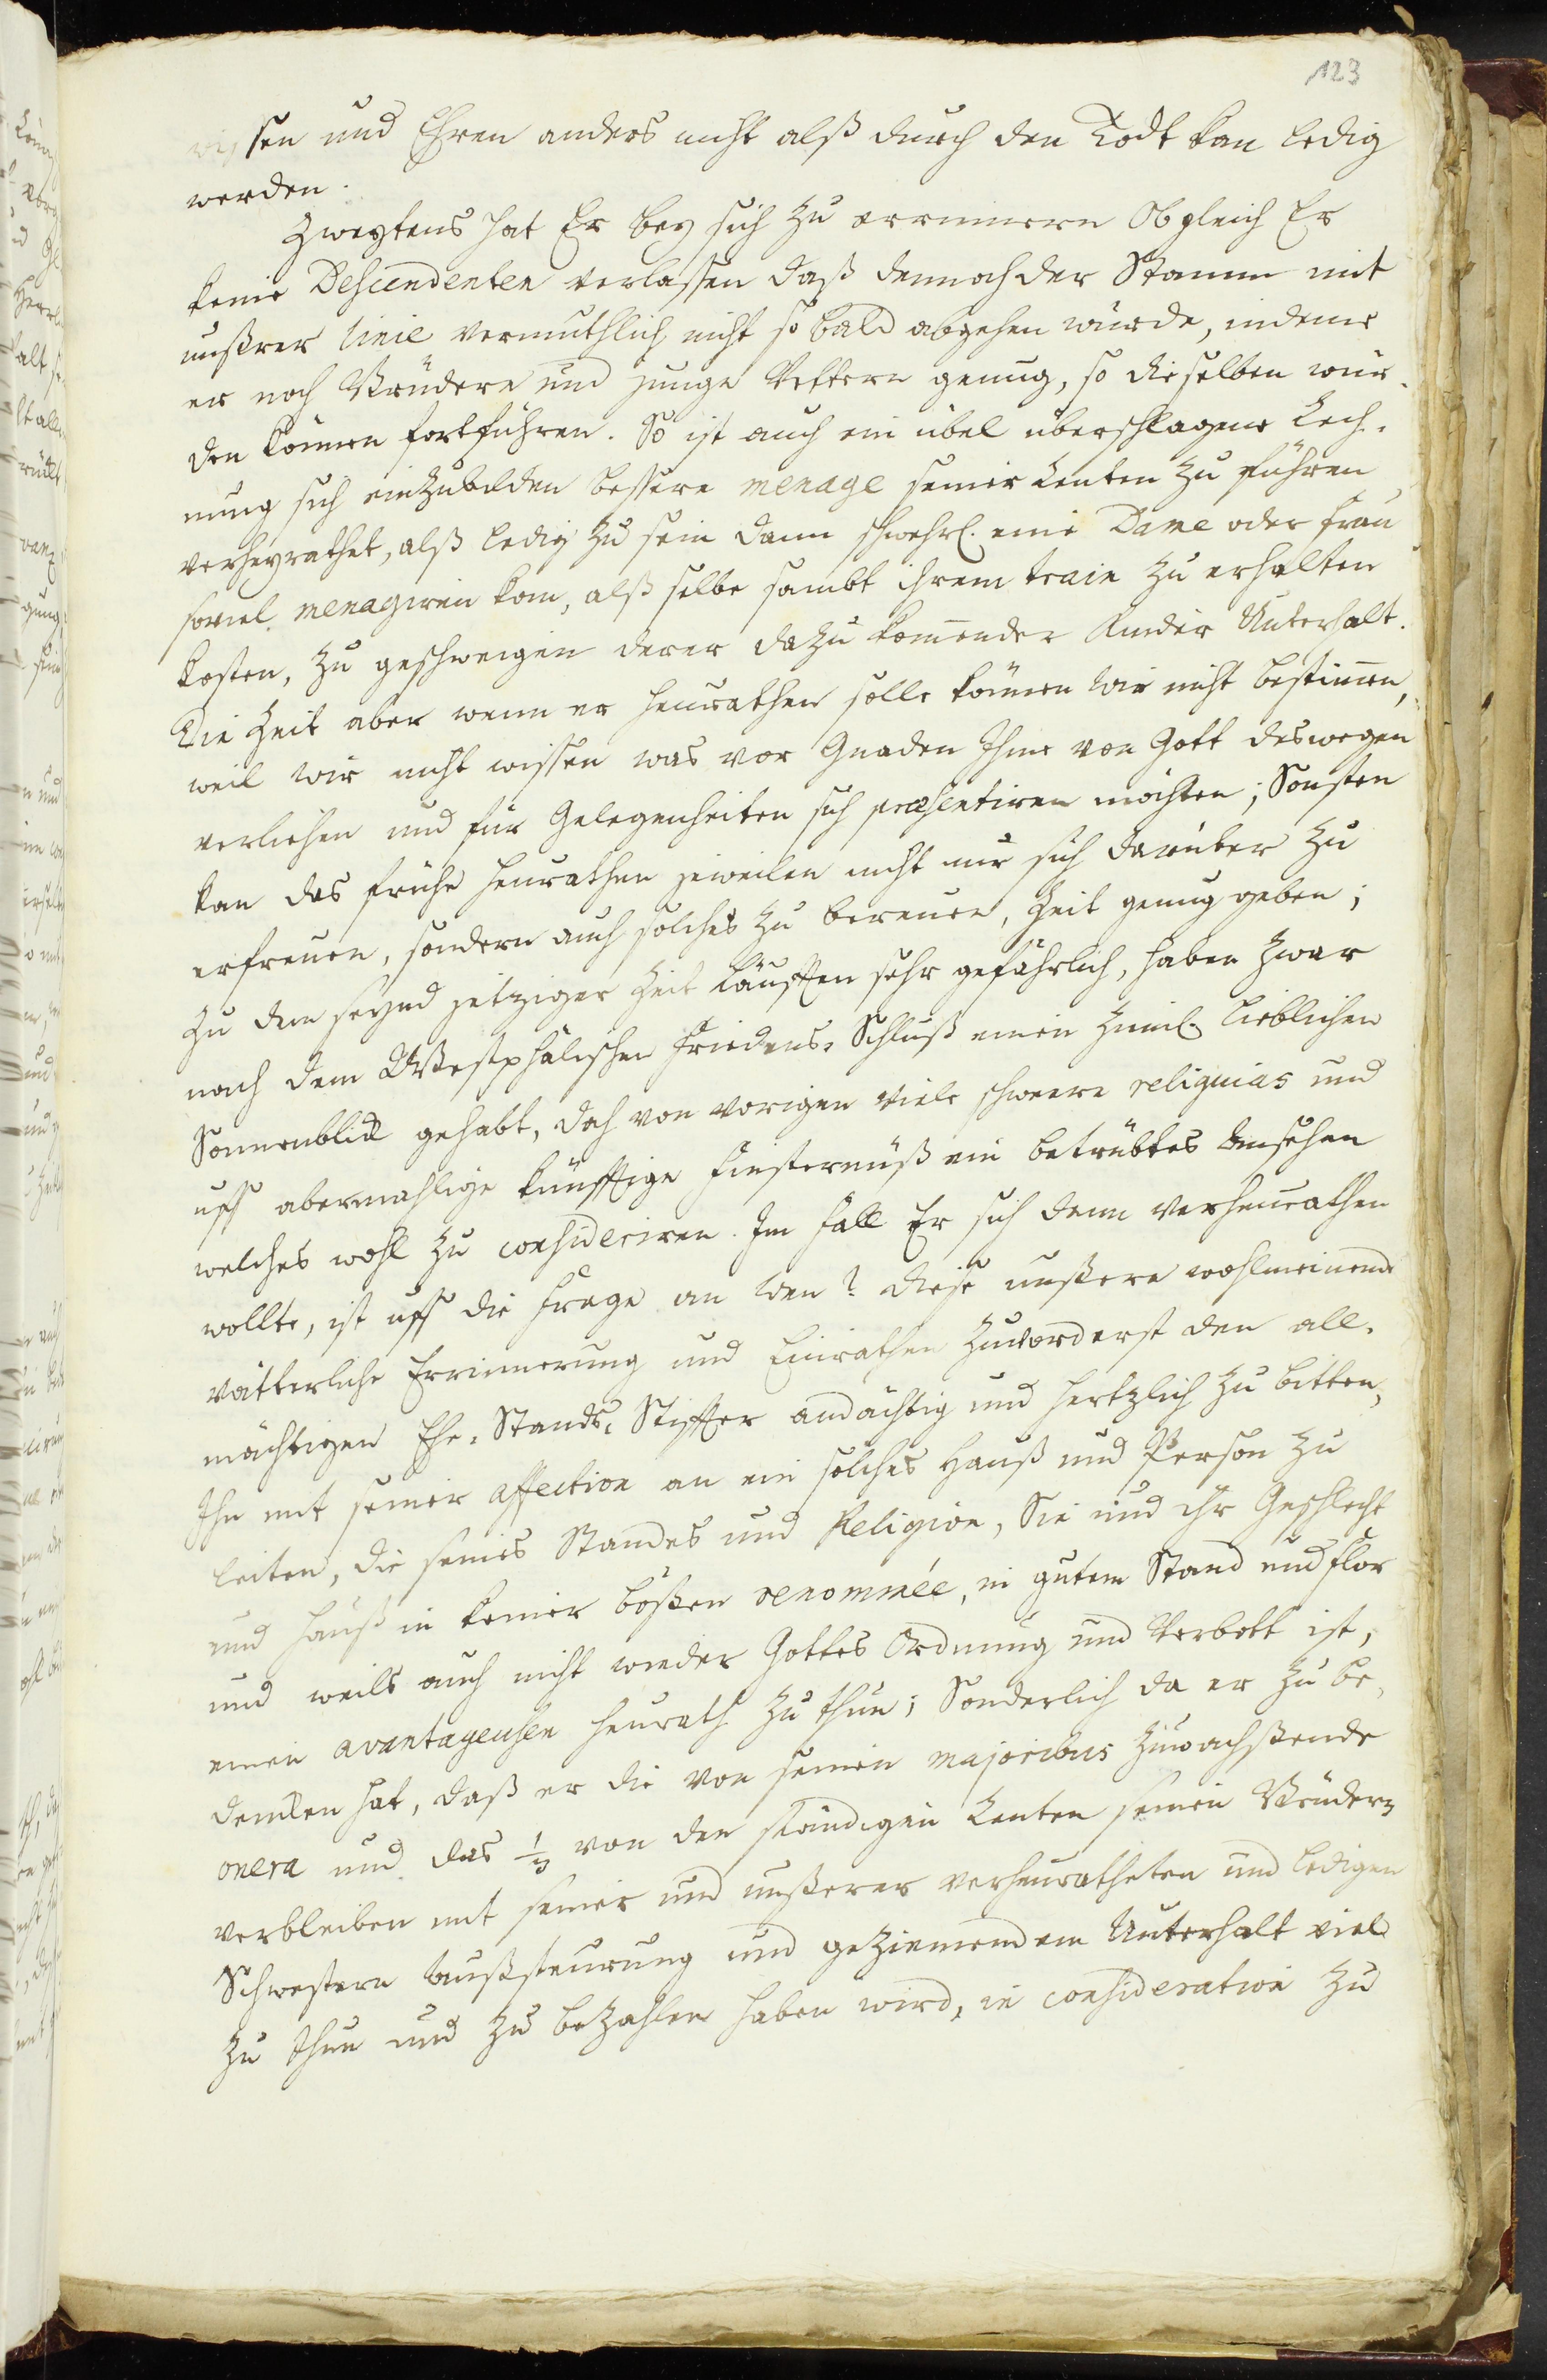 123
wissen und Ehren anders nicht alß durch den Todt kan ledig
werden.
Zweytens hat Er bey sich zu errinnern Ob gleich Er
keine Descendenten verlassen daß dennoch der Stamm mit
unßrer linie vermuthlich nicht so bald abgehen würde, indeme
er noch Brüdere und junge Vettern genug, so dieselben wür-
den können fortführen. So ist auch ein übel überschlagene Rech-
nung sich einzubilden bessere menage seiner Renten zu führen
verheyrathet, alß ledig zu sein dann schwehrl. eine Dame oder frau
soviel menagiren kan, alß selbe sambt ihrem train zu erhalten
kosten, zu geschweigen derer dazu kom̅ender Kinder Unterhalt.
Die Zeit aber wenn er heurathen solle können wir nicht bestim̅en,
weil wir nicht wissen was vor Gnaden Ihme von Gott deswegen
verliehen und für Gelegenheiten sich præsentiren möchten; Sonsten
kan das frühe heurathen jeweilen nicht nur sich darüber zu
erfreuen, sondern auch solches zu bereuen, Zeit genug geben;
Zu dem seynd jetziger Zeit Läufften sehr gefährlich, haben zwar
nach dem Westphälischen Friedens-Schluß einen ziml. lieblichen
Sonnenblick gehabt, doch von vorigen viele schwere reliquias und
uff abermahlige künfftige Finsternüß ein betrübtes Ansehen
welches wohl zu consideriren. Im fall Er sich denn verheurathen
wollte, ist uff die Frage an wen? diese unßere wohlmeinende
vätterliche Errinnerung und Einrathen zuvorderst den all-
mächtigen Ehe-Stands-Stiffter andächtig und hertzlich zu bitten,
Ihn mit seiner affection an ein solches Hauß und Person zu
leiten, die seines Standes und Religion, Sie und ihr Geschlecht
und Hauß in keiner bößen renommée, in gutem Stand und flor
und weils auch nicht wieder Gottes Ordnung und Verbott ist,
einen avantageusen heurath zu thun; Sonderlich da er zu be-
dencken hat, daß er die von seinen majoribus zuwachßende
onera und das 1/3 von den ständigen Renten seinen Brüdern
verbleiben mit seiner und unßerer verheuratheten und ledigen
Schwestern Außsteurung und geziemendem Unterhalt viel
zu thun und zu bezahlen haben wird, in consideration zu